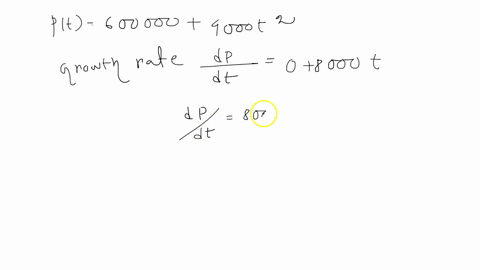 P(t) - 600000 + 4000t 2
growth rate dP/dt = 0+8000 t
dP/dt = 80